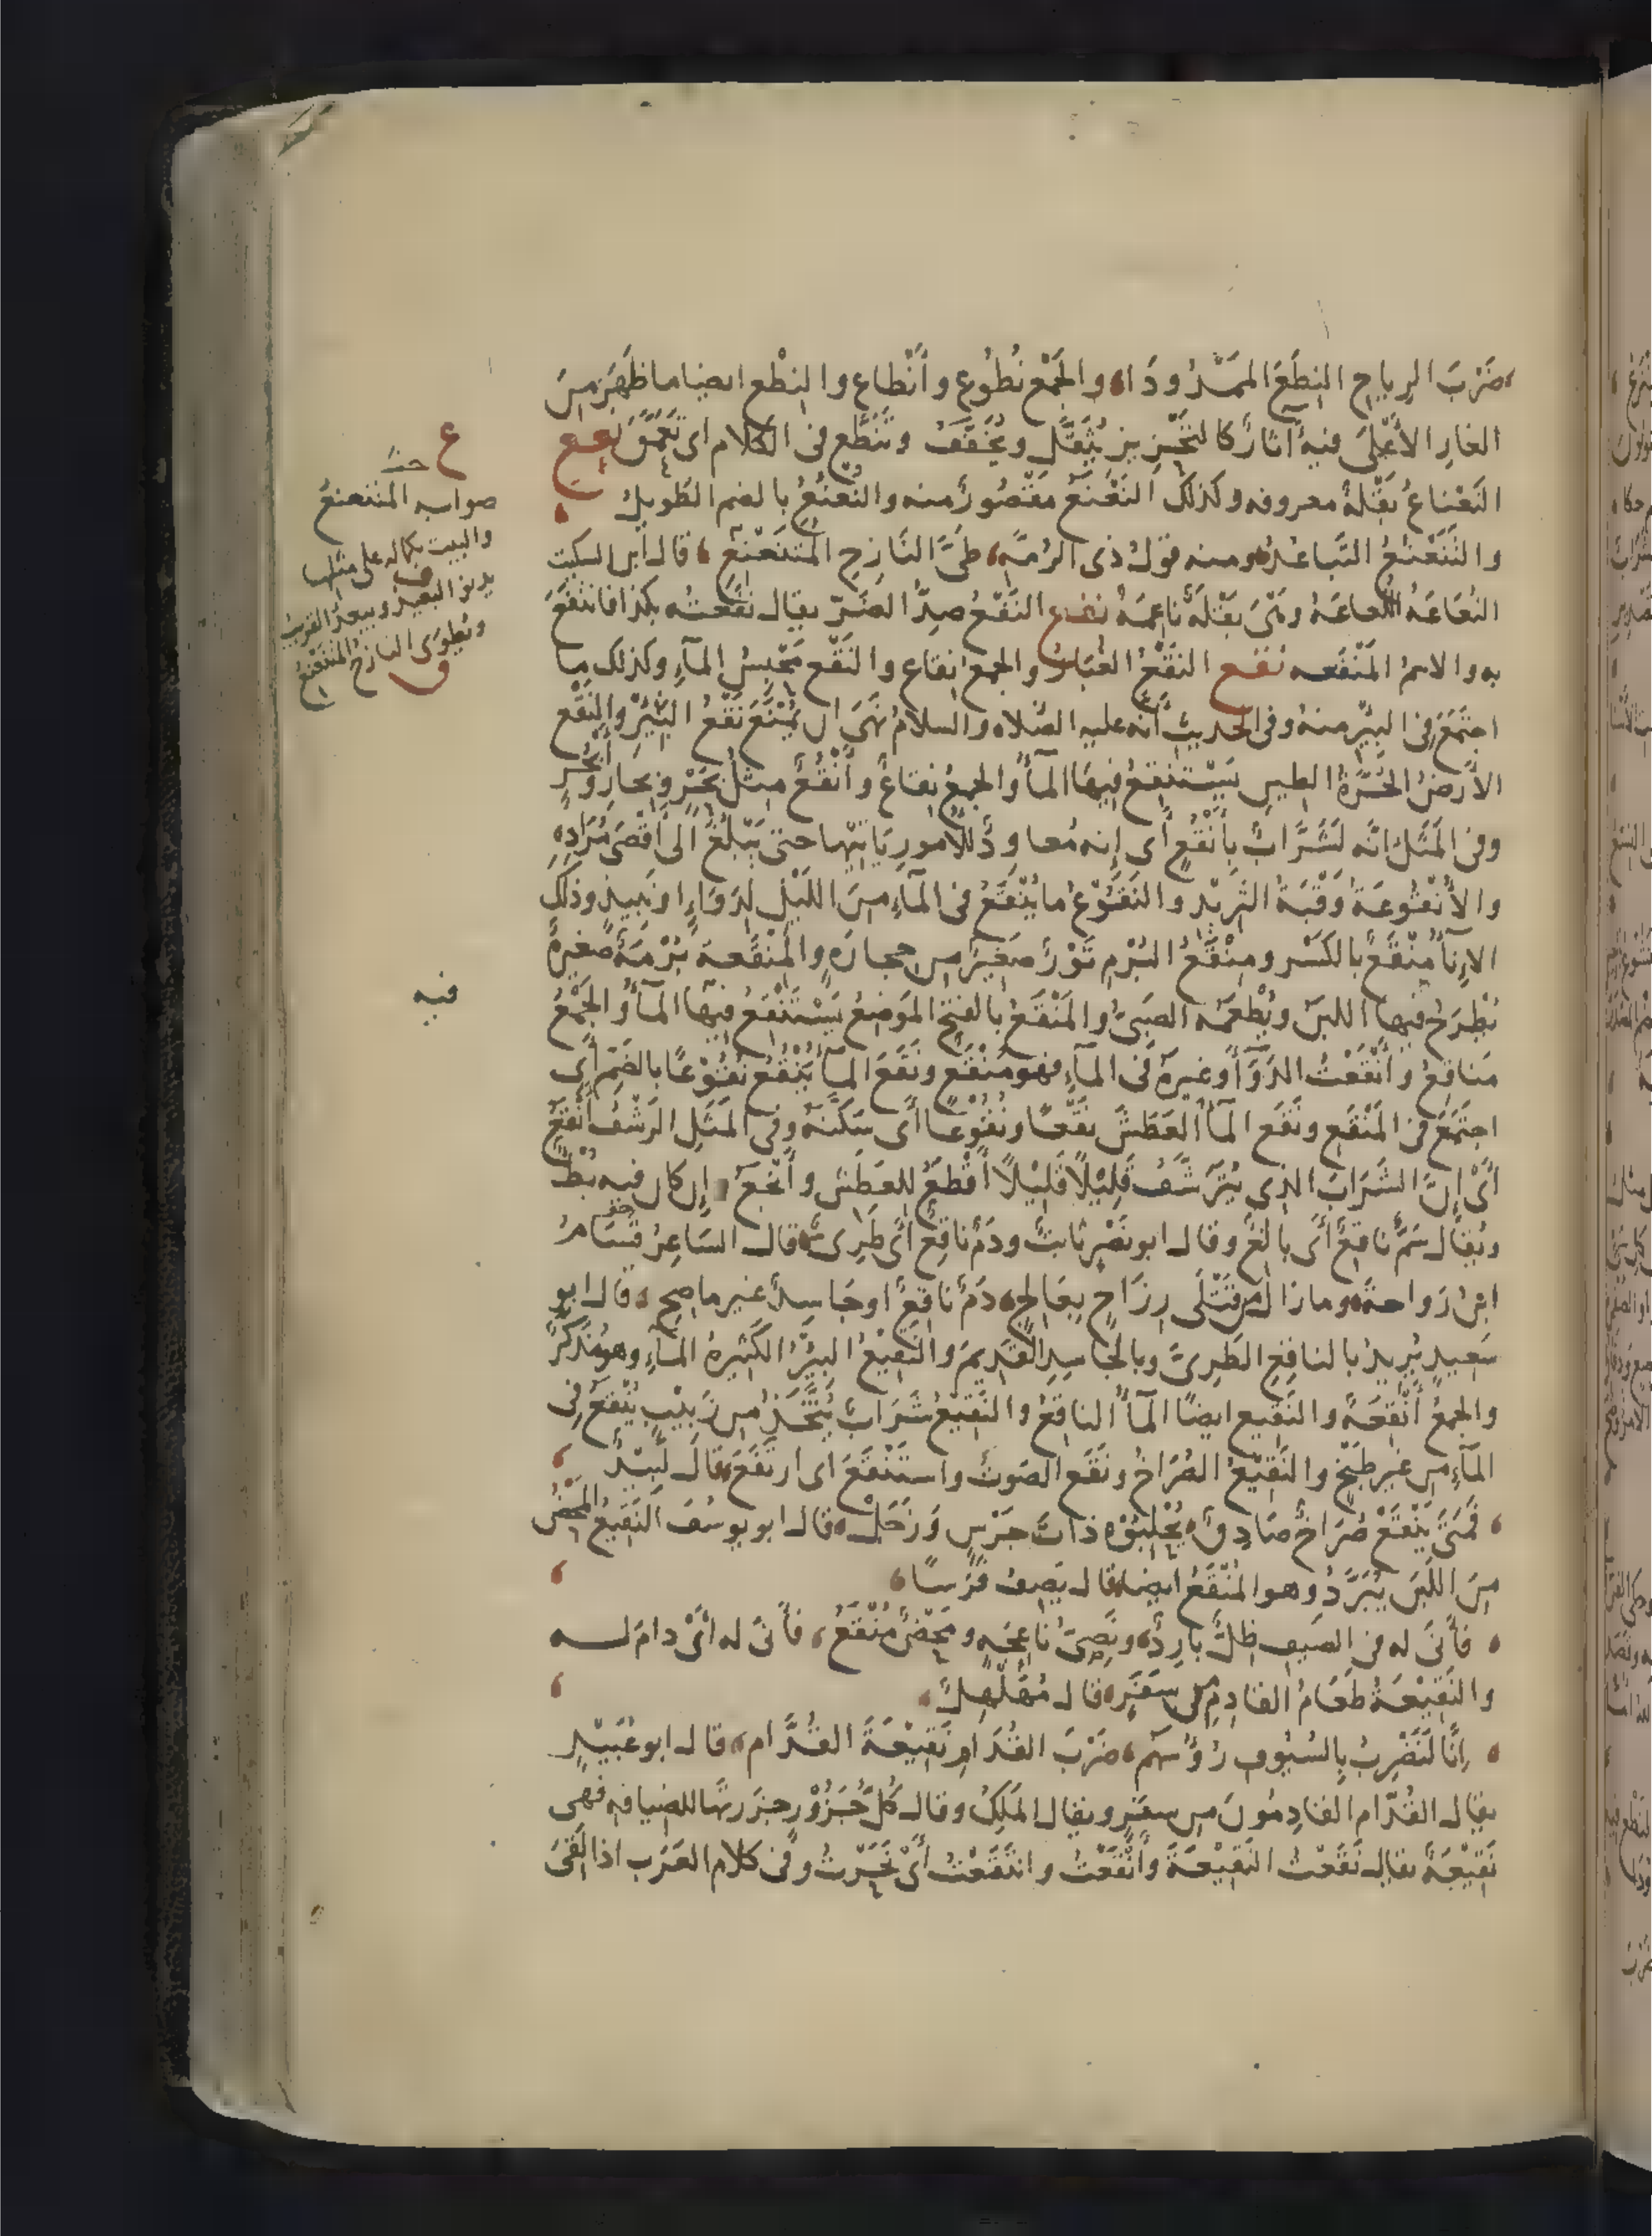 ضَرْبَ الرِياحِ النِطَعَ المَمْدُودَا، والجَمْع نُطُوع وأَنْطاع والنِطْع ايضا ما ظَهَرَ مِنَ
الغارِ الأَعْلَى فيه آثارٌ كالتَحْزِيزِ يُثَقَّل ويُخَفَّفُ وتَنَطَّع فى الكَلام اى تَعَمَّقَ نعع
النَعْناعُ بَقْلَةٌ معروفه وكذلك النَعْنَعُ مَقْصُورٌ منه والنُعْنُعُ بالضم الطَوِيلُ
والتَنَعْنُعُ التَباعُدُ ومنه قَولُ ذى الرُمَّةِ، طَىَّ النَازِحِ المُتَنَعْنِعِ، قال ابن السكيت
النُعَاعَةُ اللُعاعَةُ وهْىَ بَقْلَةٌ ناعِمَةٌ نفع النَفْعُ ضِدُّ الضَرّ يقال نَفَعتُه بكذا فانتَفَعَ
به والاسمُ المَنْفَعه نقع النَقْعُ الغُبَارُ والجمع نِقاع والنَقْع مَحْبِسُ المآءِ وكذلك ما
اجتَمَعَ فى البِئْرِ منهُ وفى الحَدِيثِ أنّه عليه الصَلاه والسلامُ نَهَى ان يُمْنَعَ نَقْعُ البِئْرِ والنَقْع
الأَرْضُ الحُرَّةُ الطينِ يَسْتَنْقِعُ فيهَا المآءُ والجمعُ نِقاعٌ وأَنْقُعٌ مِثْلُ بَحْرٍ وبِحارٍ وأَبْحُرٍ
وفى المَثَل انّه لَشَرَّابٌ بِأَنْقُعٍ أَى إنه مُعاوِدٌ للأُمورِ يَاتِيْها حتى يَبْلُغَ الى أَقْصَى مُرَادِهِ
والأُنْقُوعَةُ وَقْبَةُ الثَرِيْدِ والنَقُوْعُ ما يُنْقَعُ فى المآءِ مِنَ اللَيْلِ لِدَوَاءٍ او نَبِيذٍ وذلك
الإنآءُ مِنْقَعٌ بالكَسْر ومِنْقَعُ البُرَمِ تَوْرٌ صَغِيرٌ من حجارَةٍ والمِنْقَعة بُرْمَةٌ صَغيرةٌ
يُطْرَحُ فيها اللبَنُ ويُطْعَمُه الصَبِىُّ والمَنْقَعُ بالفتح المَوضِعُ يَسْتَنْقِعُ فيها المآءُ والجَمْعُ
مَناقِعُ وأَنْقَعْتُ الدَوَآءَ وغَيرَهُ فى المآءِ فهو مُنْقَع ونَقَعَ المآءُ يَنْقَعُ نُقُوْعًا بالضَمّ أَى
اجتَمَعَ فى المَنْقَعِ ونَقَعَ المآءُ العَطَشَ نَقْعًا ونُقُوْعًا أَى سَكَّنَهُ وفى المَثَلِ الرَشْفُ أَنْقَعُ
أَىْ إنَّ الشَرابَ الذى يُتَرَشَّفُ قَلِيْلاً قَلِيْلاً أَقْطَعُ للعَطَشِ وأَنْجَعُ وإن كان فيه بُطْءٌ
ويُقال سَمٌّ ناقِعٌ أَى بالغٌ وقال ابو نَصْرٍ ثابتٌ ودَمٌ ناقِعٌ أَى طَرِىٌّ، قال الشاعِرُ قَسَامُ
ابنُ رَواحةَ، وما زالَ مِن قَتْلَى رِزَاحٍ بِعالِجٍ، دَمٌ ناقِعٌ او جَاسِدٌ غير ماصِحِ، قال ابو
سَعِيدٍ يُرِيدُ بالناقِعِ الطَرِىَّ وبالجَاسِدِ القَدِيمَ والنَقِيْعُ البِئْرُ الكَثِيرةُ المآءِ وهو مُذَكَّرٌ
والجمعُ أَنْقِعَةٌ والنَقِيع ايضًا المآءُ الناقِعُ والنَقِيْعُ شَرَابٌ يُتَّخَذُ من زَبِيْبٍ يُنْقَعُ فى
المآءِ من غيرِ طَبْخٍ والنَقِيْعُ الصُرَاخُ ونَقَعَ الصَوتُ واسْتَنْقَعَ اى ارتَفَعَ، قال لَبِيْدٌ
، فَمَتَى يَنْقَعْ صُرَاخٌ صَادِقٌ، يُحْلِبُوْه ذاتَ جَرْسٍ وَزَجَلْ، قال ابو يوسُفَ النَقِيعُ المَحْضُ
مِنَ اللَبَنِ يُبَرَّدُ وهو المُنْقَعُ ايضا، قال يَصِفُ فَرَسًا،
، فَأَنَى له فى الصَيفِ ظِلٌّ بارِدٌ، ونَصِىُّ ناعِجَةٍ ومَحْضٌ مُنْقَعُ، فأنى له أَىْ دامَ لـه
والنَقِيْعَةُ طَعَامُ القادِمِ مِن سَفَرِه، قال مُهَلْهِلٌ،
، إنَّا لَنَضْرِبُ بِالسُيُوفِ رُؤُسَهم، ضَرْبَ القُدَارِ نَقِيْعَةَ القُدَّامِ، قال ابو عُبَيْدٍ
يقال القُدّام القادِمُونَ من سفرٍ ويقال المَلِكُ وقال كُلُّ جَزُوْرٍ جَزَرتَها للضيافه فهى
نَقِيْعَةٌ يقال نَقَعْتُ النَقِيْعَةَ وأَنْقَعْتُ وانتَقَعْتُ أَىْ نَحَرْتُ وفى كلام العَرَبِ اذا لَقىَ
ع
حشـ
صوابه المتنعنعُ
والبيت بكماله على مثلها
يدنو البعيدُ ويبعدُ القريبُ
ويُطوى النازحُ المتنعنعُ
ق
فيه